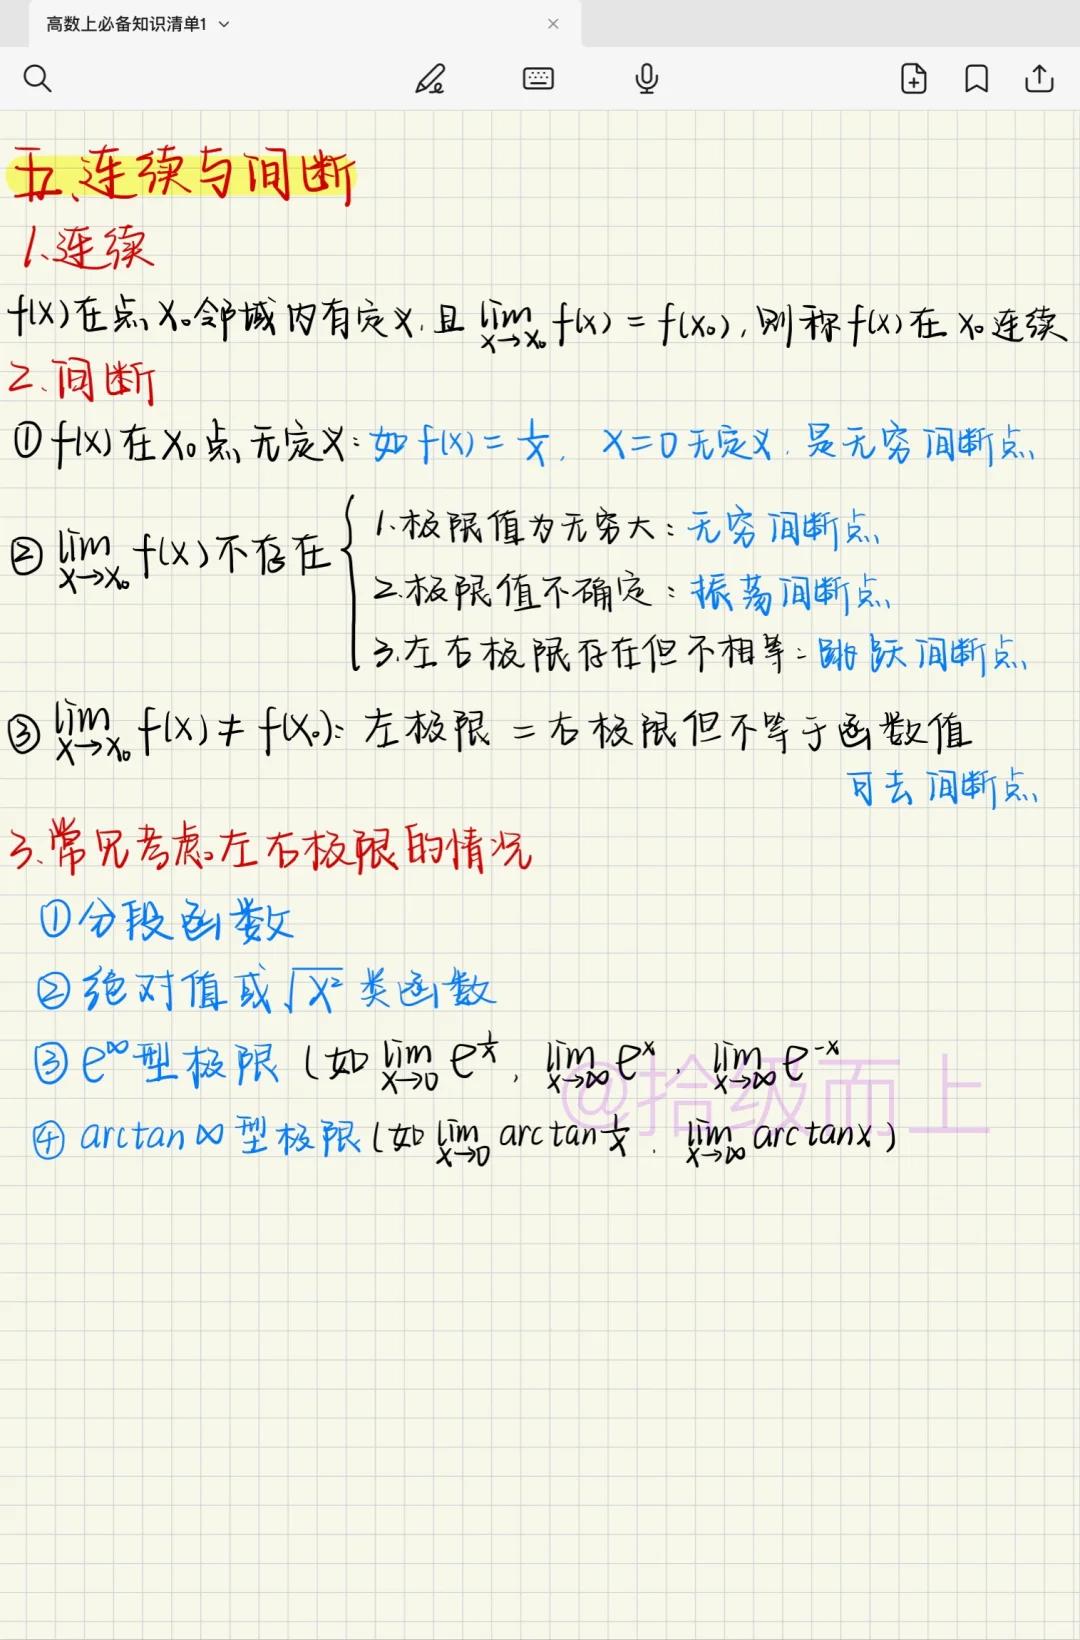 高数上必备知识清单1
五、连续与间断
1.连续
f(x)在点x₀邻域内有定义,且 lim x→x₀ f(x) = f(x₀),则称f(x)在x₀连续
2.间断
① f(x)在x₀点无定义:如f(x)=1/x, x=0无定义,是无穷间断点
② lim x→x₀ f(x)不存在
1.极限值为无穷大:无穷间断点
2.极限值不确定:振荡间断点
3.左右极限存在但不相等:跳跃间断点
③ lim x→x₀ f(x) ≠ f(x₀):左极限 = 右极限但不等于函数值
可去间断点
3.常见考虑左右极限的情况
①分段函数
②绝对值或√x²类函数
③ e^∞型极限 (如 lim x→0 e^(1/x), lim x→∞ e^x, lim x→∞ e^-x
④ arctan∞型极限(如 lim x→0 arctan 1/x, lim x→∞ arctanx)
@拾级而上